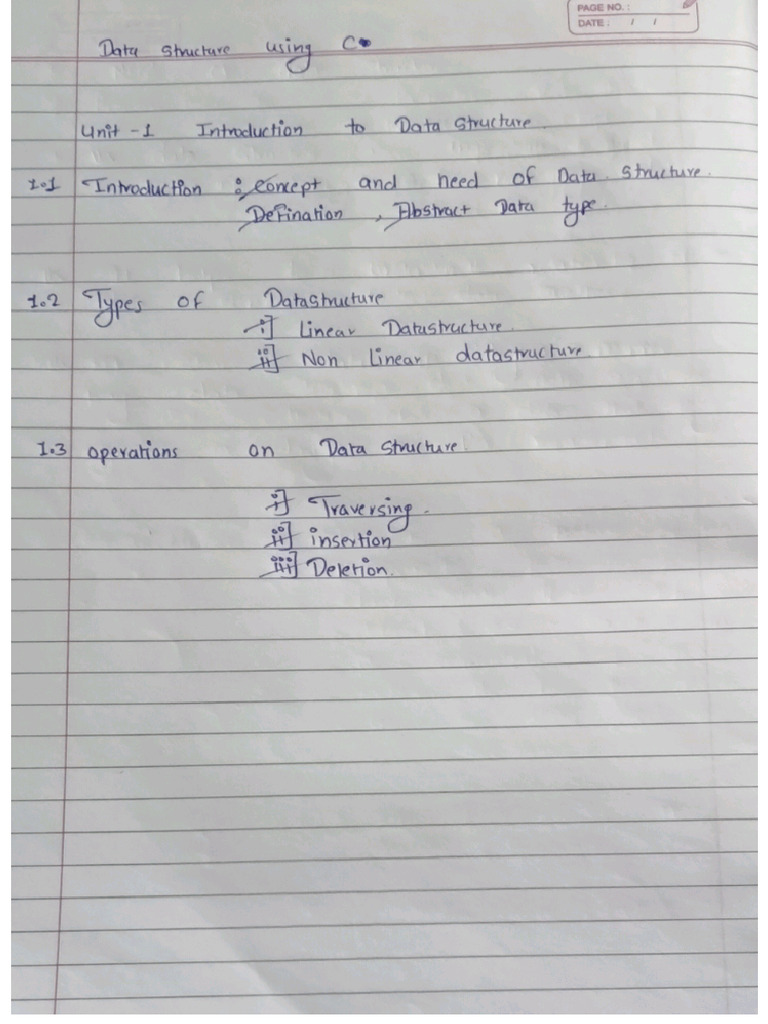 PAGE NO. :
DATE : / /
Data Structure using C
Unit -1 Introduction to Data Structure.
1.1 Introduction : concept and need of Data Structure.
Defination, Abstract Data type.
1.2 Types of Datastructure
i] Linear Datastructure.
ii] Non Linear datastructure
1.3 operations on Data Structure.
i] Traversing.
ii] insertion
iii] Deletion.